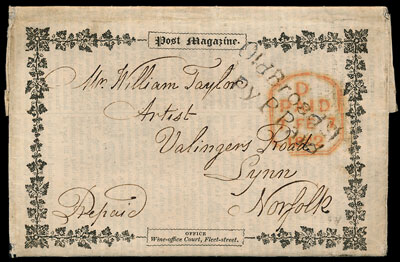 Post Magazine.
Old Broad St
Py P Paid
Mr. William Taylor
D
PAID
FE
Artist
Valingers Road
Lynn
Norfolk
Prepaid
OFFICE
Wine-office Court, Fleet-street.